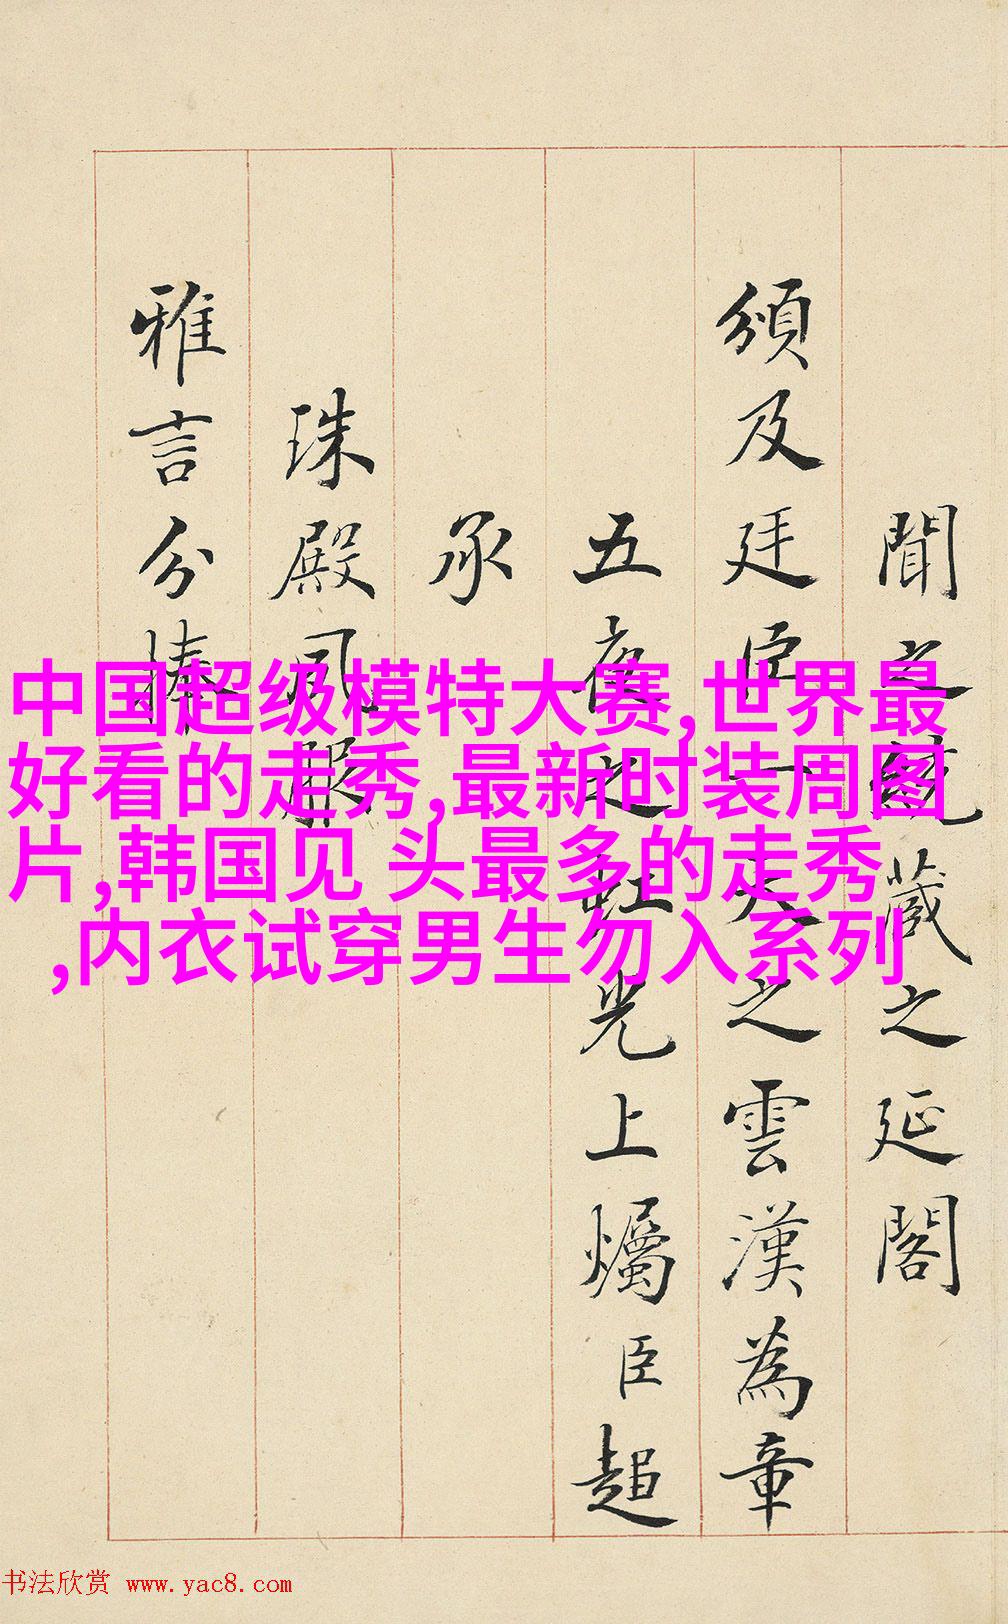 聞之競藏之延閣
頒及廷臣一天之雲漢為章
五夜之虹光上爥臣趙
承
珠殿夙服
雅言分捧
中国超级模特大赛,世界最
好看的走秀,最新时装周图
片,韩国见 头最多的走秀
,内衣试穿男生勿入系列
书法欣赏 www.yac8.com